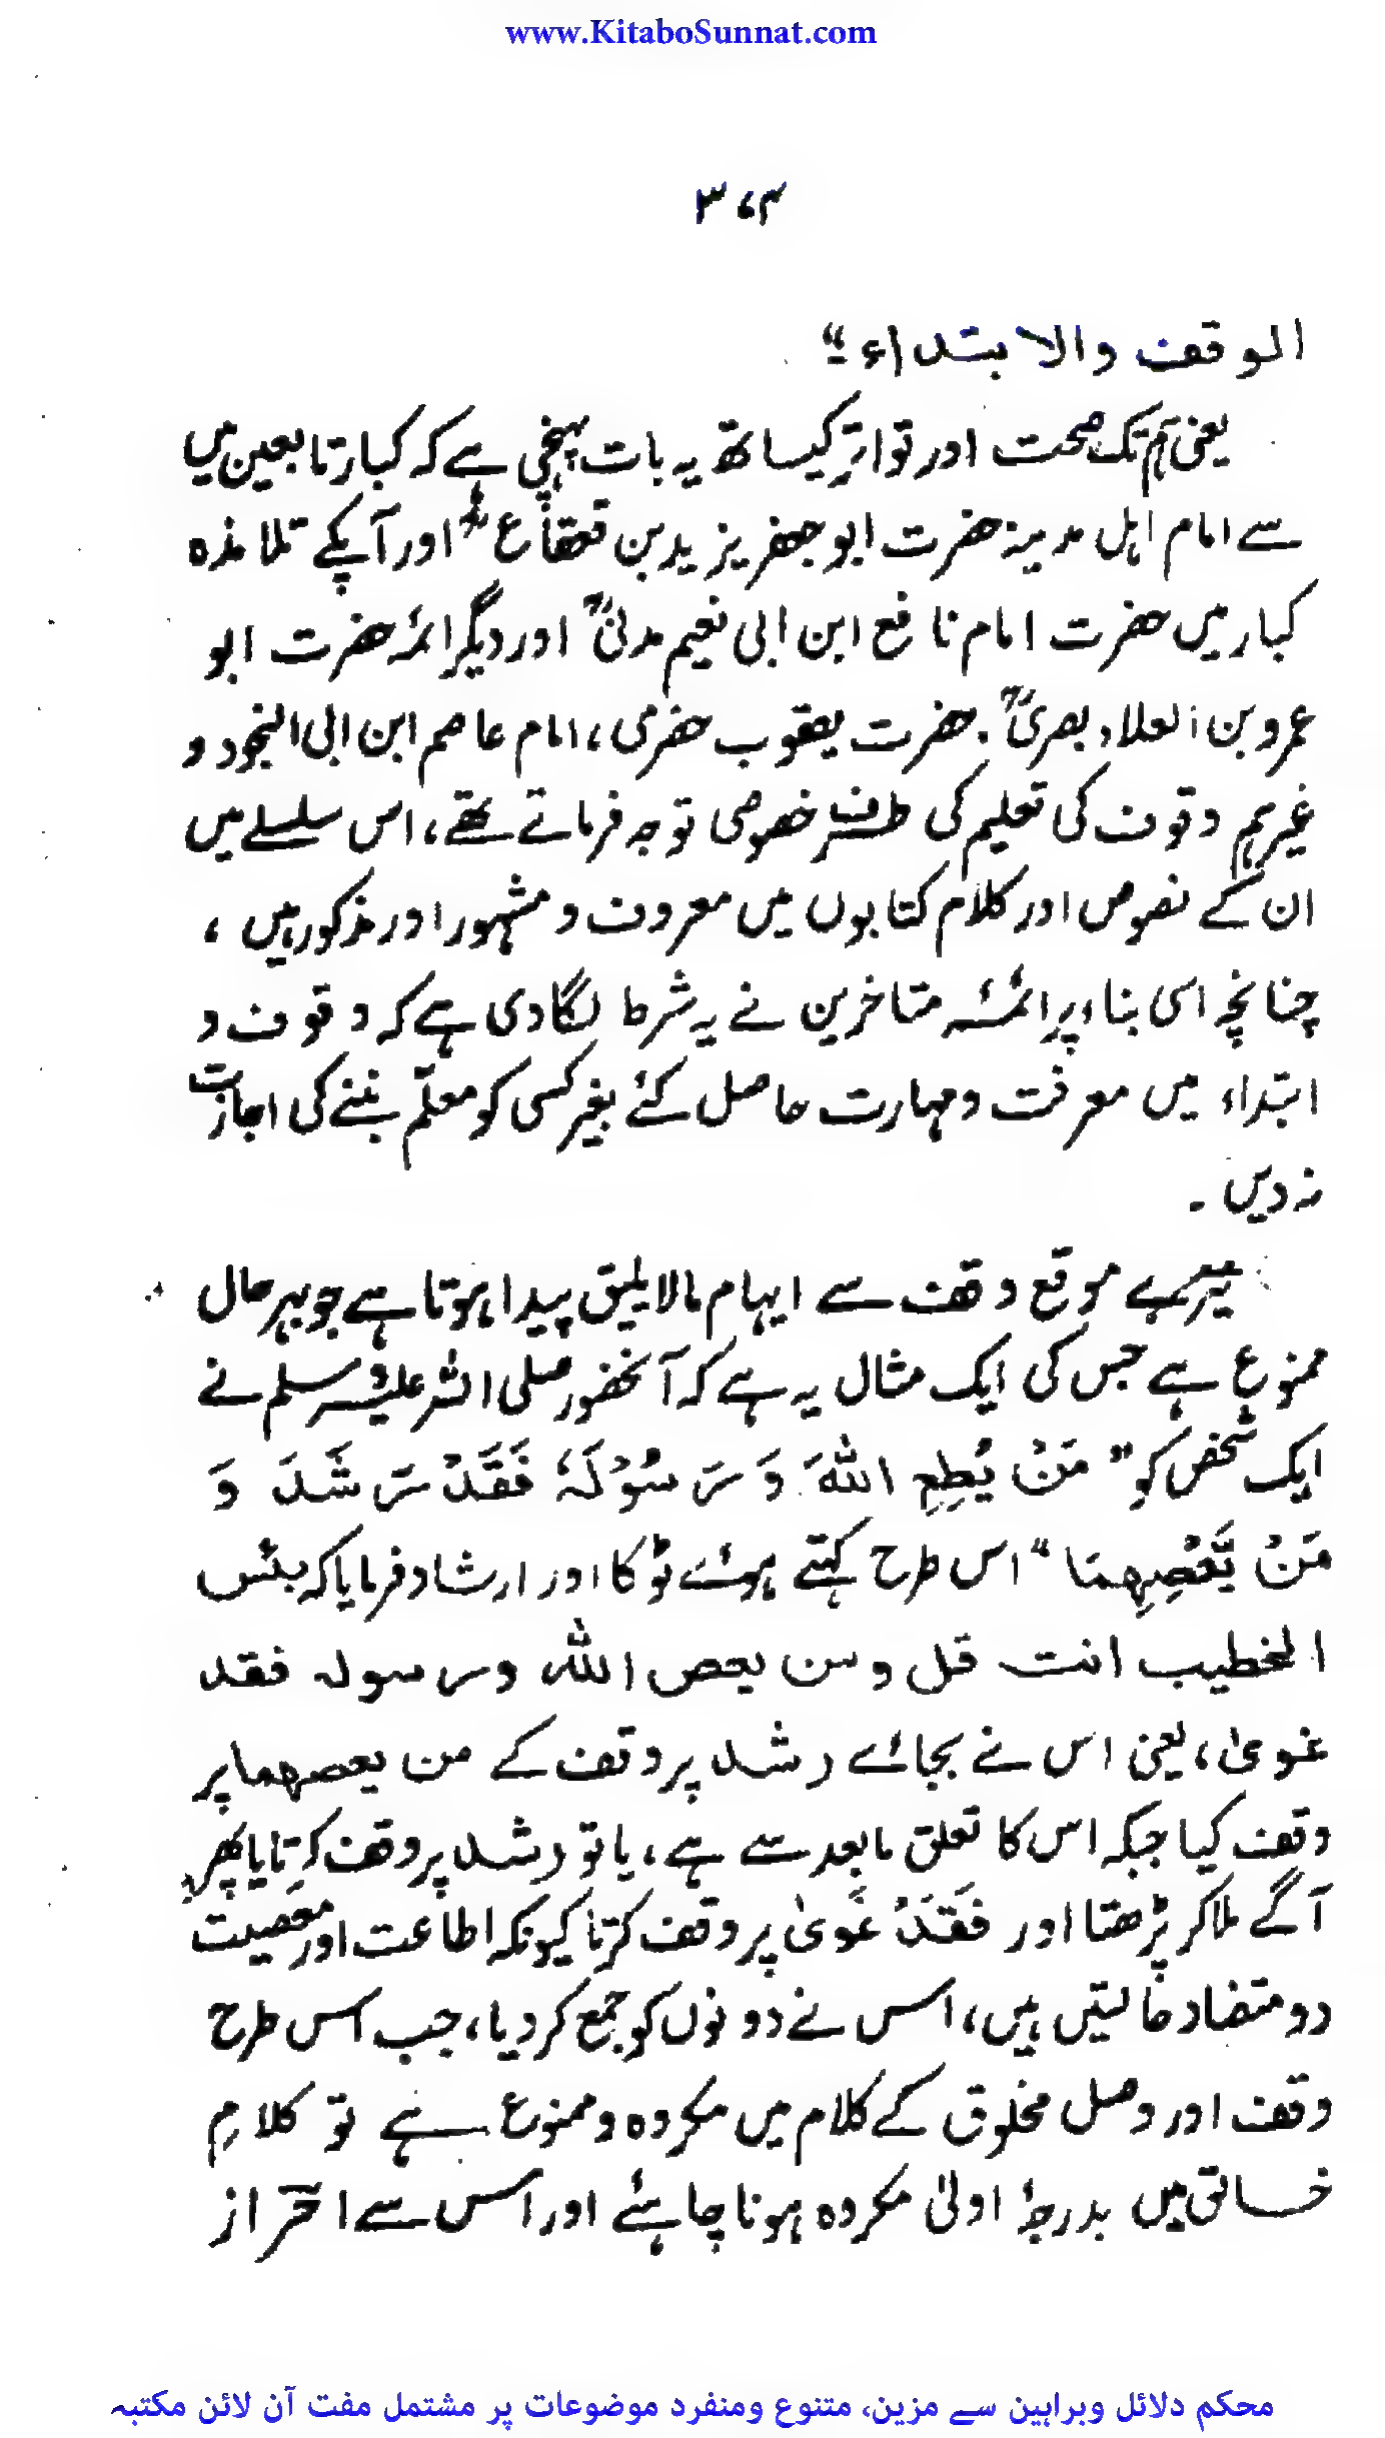 www.KitaboSunnat.com
۳۷۴
الوقف والابتداء۔“
یعنی ہم تک صحت اور تواتر کیساتھ یہ بات پہنچی ہے کہ کبار تابعین میں
سے امام اہل مدینہ حضرت ابو جعفر یزید بن قعقاعؒ اور آپکے تلامذہ
کبار میں حضرت امام نافع ابن ابی نعیم مدنیؒ اور دیگر ائمہ حضرت ابو
عمرو بن العلاء بصریؒ۔ حضرت یعقوب حضرمی، امام عاصم ابن ابی النجود و
غیرہم وقوف کی تعلیم کی طرف خصوصی توجہ فرماتے تھے، اس سلسلے میں
ان کے نصوص اور کلام کتابوں میں معروف و مشہور اور مذکور ہیں ،
چنانچہ اسی بناء پر ائمہ متاخرین نے یہ شرط لگا دی ہے کہ وقوف و
ابتداء میں معرفت و مہارت حاصل کئے بغیر کسی کو معلّم بننے کی اجازت
نہ دیں ۔
تیسرے موقع وقف سے ایہام مالا یلیق پیدا ہوتا ہے جو بہرحال
ممنوع ہے جس کی ایک مثال یہ ہے کہ آنحضور صلی اللہ علیہ وسلم نے
ایک شخص کو ”مَنْ یُطِعِ اللهَ وَرَسُوْلَہٗ فَقَدْ رَشَدَ وَ
مَنْ یَّعْصِهِمَا“ اس طرح کہتے ہوئے ٹوکا اور ارشاد فرمایا کہ بئس
الخطیب انت قل ومن یعص اللہ ورسولہ فقد
غویٰ، یعنی اس نے بجائے رشد پر وقف کے من یعصهما پر
وقف کیا جبکہ اس کا تعلق مابعد سے ہے، یا تو رشد پر وقف کرتا یا پھر
آگے ملا کر پڑھتا اور فَقَدْ غَویٰ پر وقف کرتا کیونکہ اطاعت اور معصیت
دو متضاد حالیتیں ہیں، اس نے دونوں کو جمع کر دیا، جب اس طرح
وقف اور وصل مخلوق کے کلام میں مکروہ و ممنوع ہے تو کلامِ
خالق میں بدرجۂ اولیٰ مکروہ ہونا چاہئے اور اس سے احتراز
محکم دلائل وبراہین سے مزین، متنوع ومنفرد موضوعات پر مشتمل مفت آن لائن مکتبہ